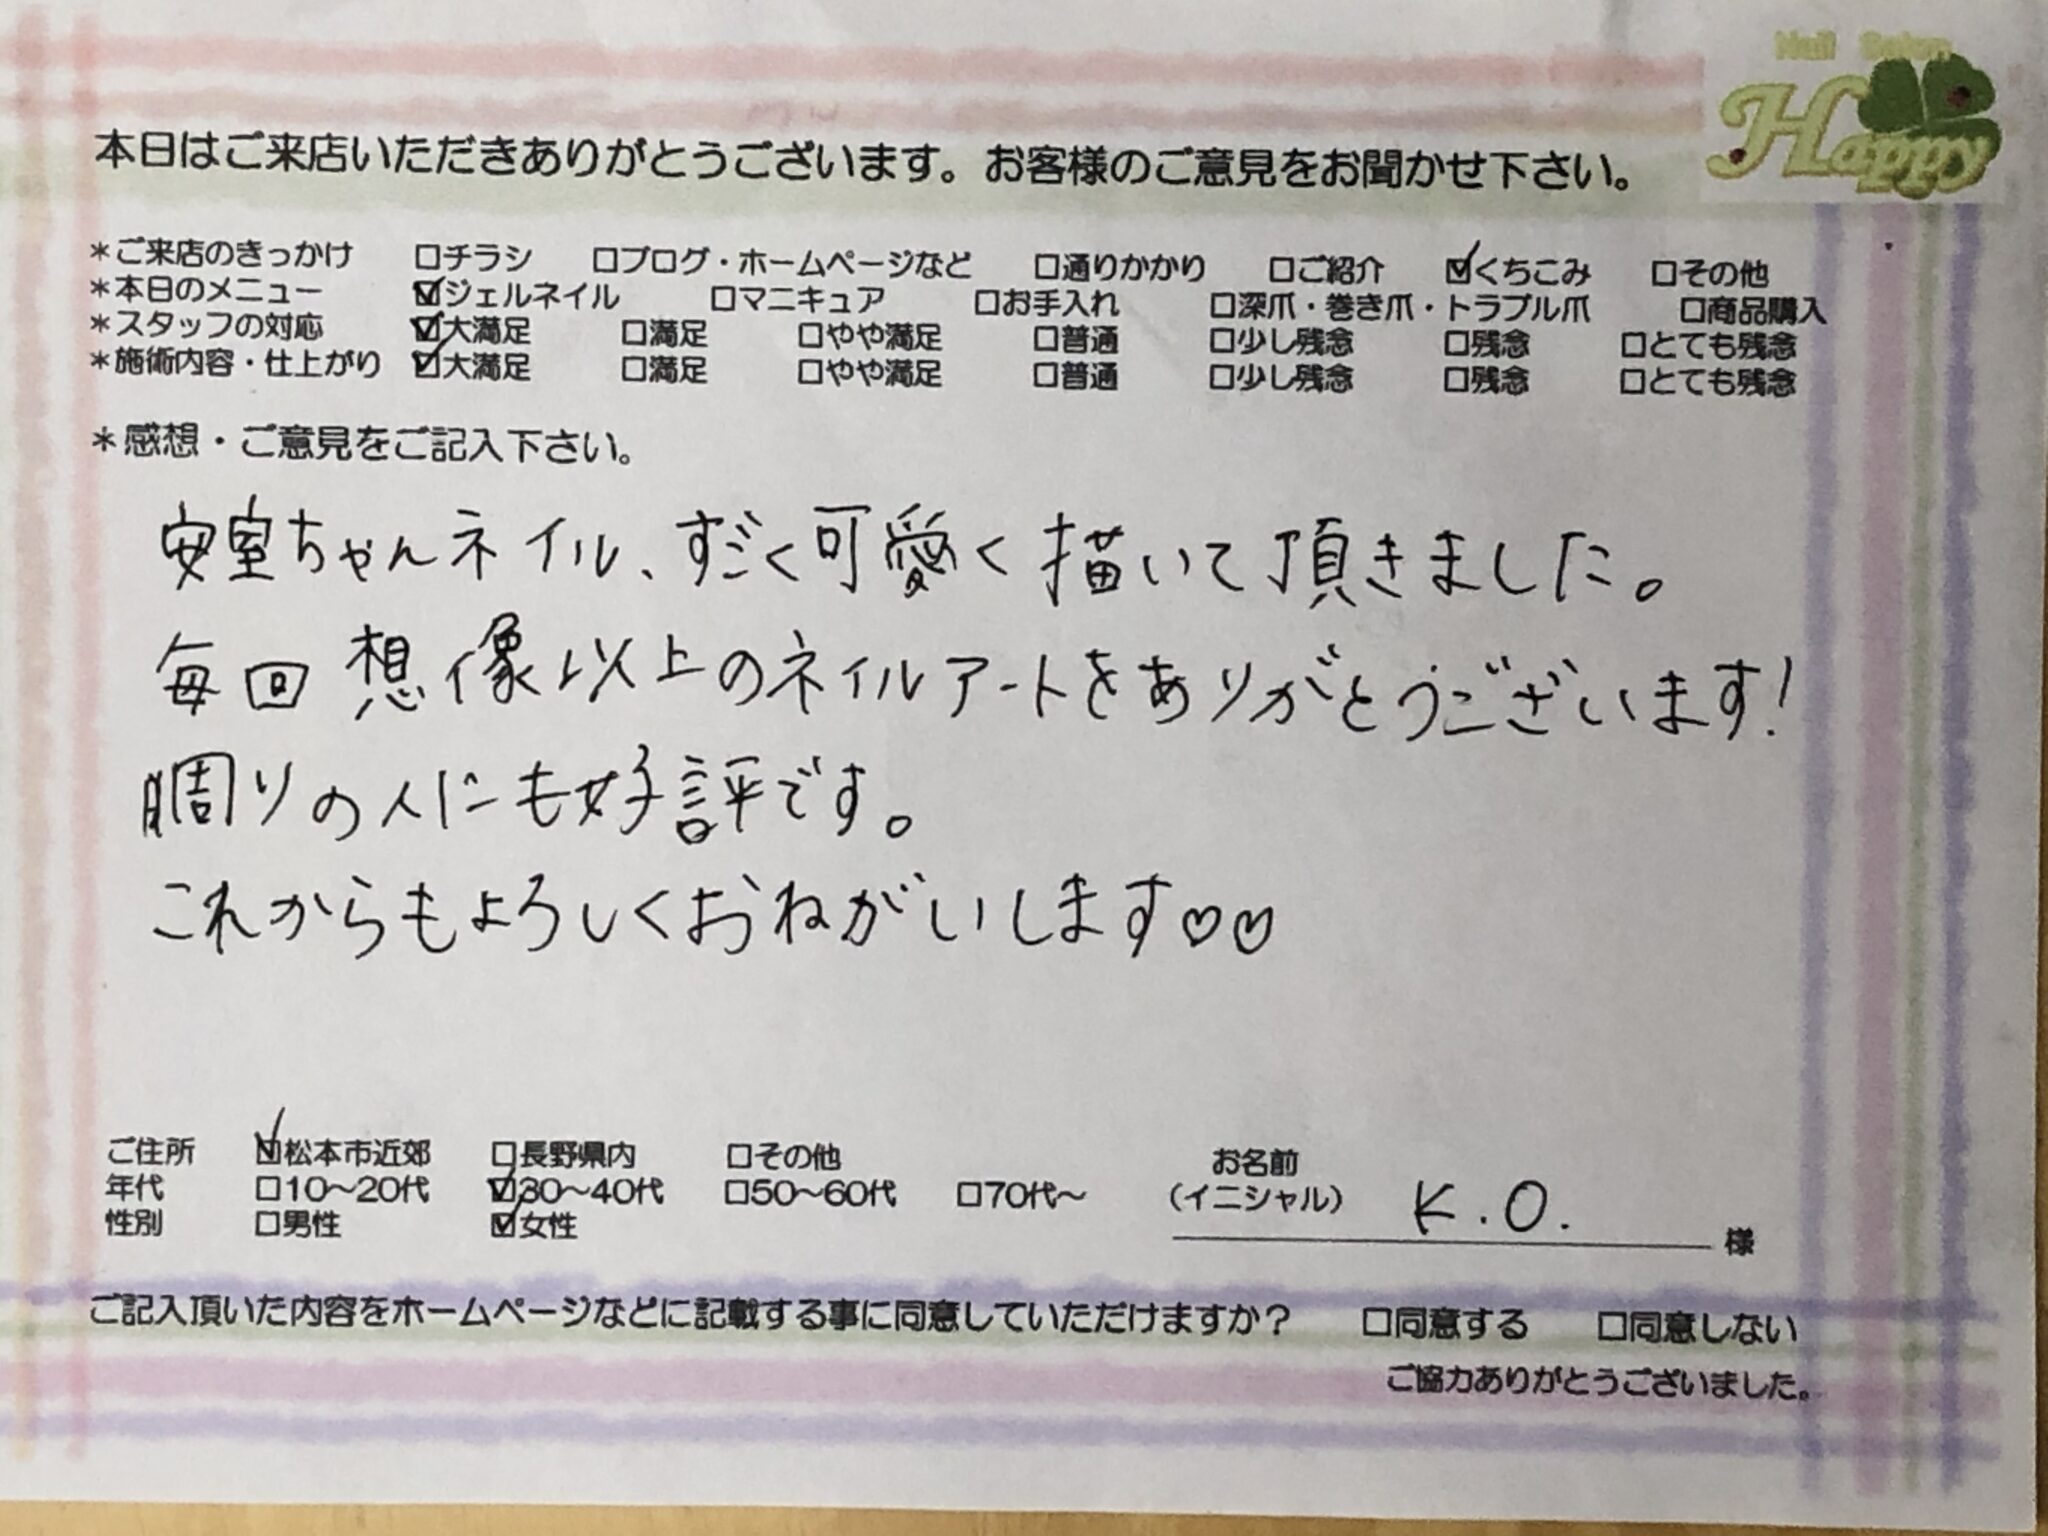 Nail Salon
Happy
本日はご来店いただきありがとうございます。お客様のご意見をお聞かせ下さい。
*ご来店のきっかけ □チラシ □ブログ・ホームページなど □通りかかり □ご紹介 ☑くちこみ □その他
*本日のメニュー ☑ジェルネイル □マニキュア □お手入れ □深爪・巻き爪・トラブル爪 □商品購入
*スタッフの対応 ☑大満足 □満足 □やや満足 □普通 □少し残念 □残念 □とても残念
*施術内容・仕上がり ☑大満足 □満足 □やや満足 □普通 □少し残念 □残念 □とても残念
*感想・ご意見をご記入下さい。
安室ちゃんネイル、すごく可愛く描いて頂きました。
毎回想像以上のネイルアートをありがとうございます!
周りの人にも好評です。
これからもよろしくおねがいします♡♡
ご住所 ☑松本市近郊 □長野県内 □その他
年代 □10~20代 ☑30~40代 □50~60代 □70代~
性別 □男性 ☑女性
お名前
(イニシャル) K.O. 様
ご記入頂いた内容をホームページなどに記載する事に同意していただけますか? □同意する □同意しない
ご協力ありがとうございました。